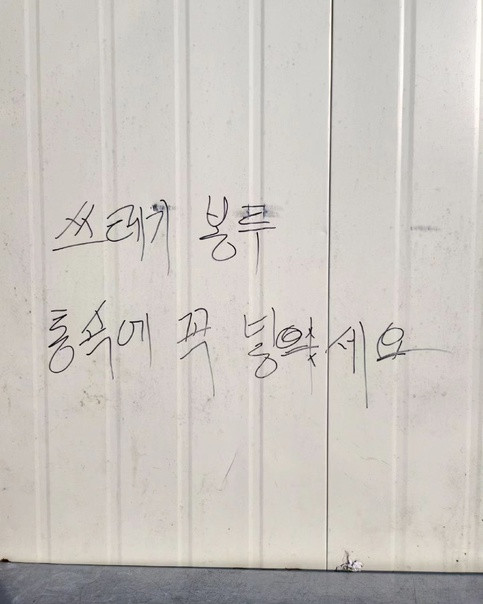 쓰레기 봉투
통속에 꼭 넣으세요